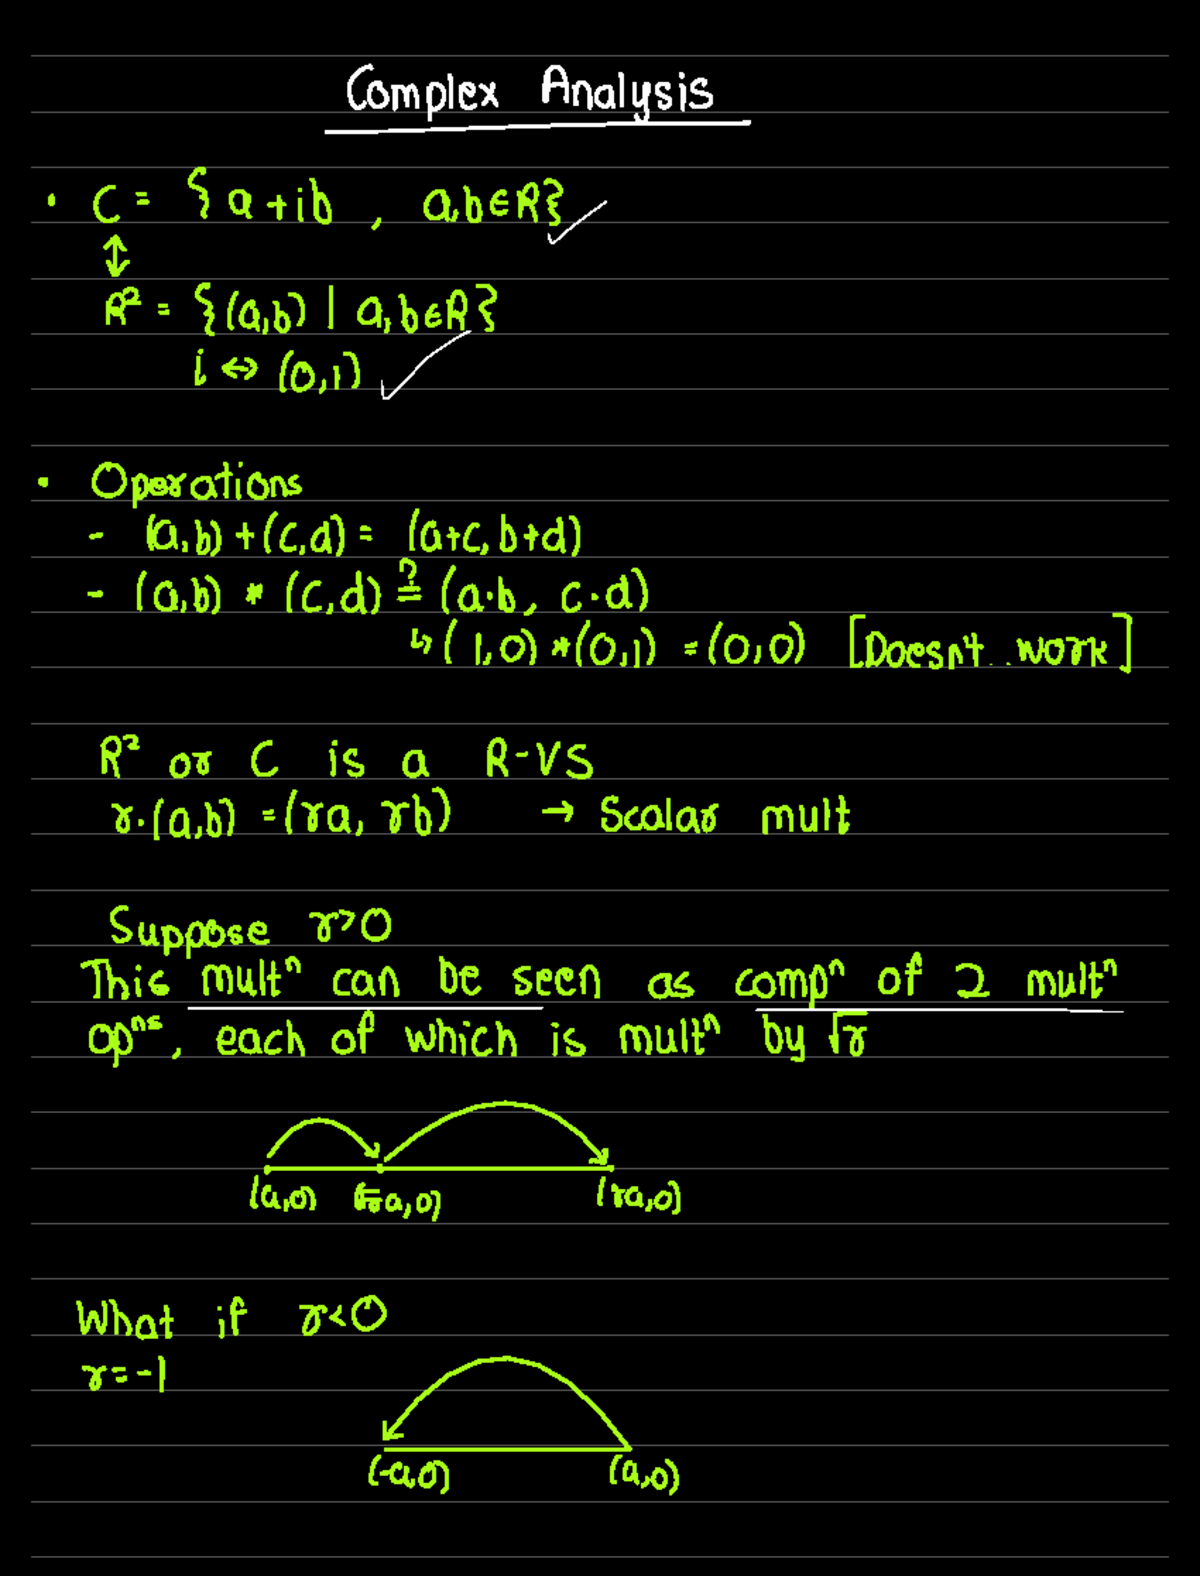 Complex Analysis
• C = {a+ib , a,b∈R} ✓
↕
R² = {(a,b) | a,b∈R}
i ↔ (0,1) ✓
• Operations
- (a,b) + (c,d) = (a+c, b+d)
- (a,b) * (c,d) ≟ (a·b, c·d)
↳ (1,0) * (0,1) = (0,0) [Doesn't work]
R² or C is a R-VS
r·(a,b) = (ra, rb) → Scalar mult
Suppose r>0
This multⁿ can be seen as compⁿ of 2 multⁿ
opⁿˢ, each of which is multⁿ by √r
(a,0) (√ra,0) (ra,0)
What if r<0
r=-1
(-a,0) (a,0)